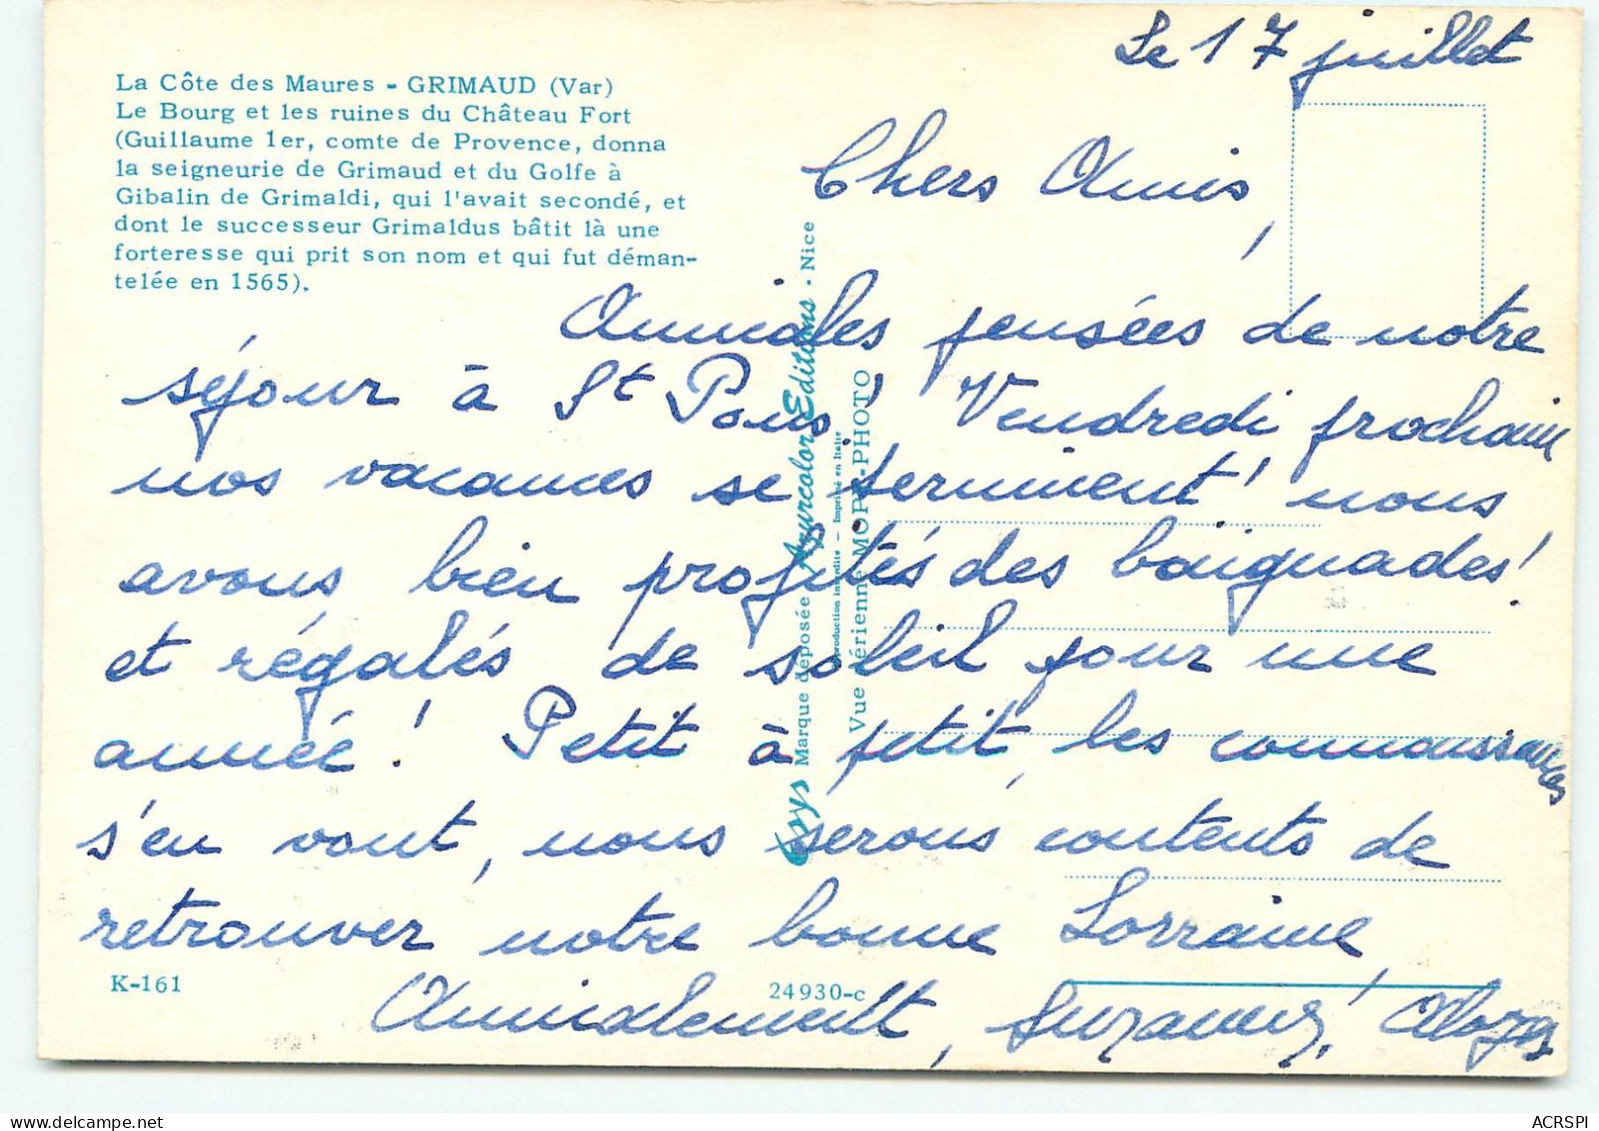 Le 17 juillet
La Côte des Maures - GRIMAUD (Var)
Le Bourg et les ruines du Château Fort
(Guillaume 1er, comte de Provence, donna
la seigneurie de Grimaud et du Golfe à
Gibalin de Grimaldi, qui l'avait secondé, et
dont le successeur Grimaldus bâtit là une
forteresse qui prit son nom et qui fut déman-
telée en 1565).
Chers Amis,
Amicales pensées de notre
séjour à St Pons! Vendredi prochain
nos vacances se terminent! nous
avons bien profités des baignades!
et régalés de soleil pour une
année! Petit à petit, les connaissances
s'en vont, nous serons contents de
retrouver notre bonne Lorraine,
Amicalement, Suzanne,
K-161
24930-c
Marque déposée Azurcolor Editions - Nice
production interdite — Imprimé en Italie
Vue aérienne MOPY-PHOTO
ACRSPI